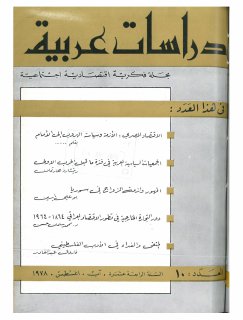 دراسات عربية
مجلة فكرية اقتصادية اجتماعية
في هذا العدد :
الاقتصاد المصري ، الأزمة وسياسات
الجمعيات السياسية العربية في فترة ما قبل الحرب الأولى
المهور وأنماط الزواج في سوريا
دور التجارة الخارجية في تطور الاقتصاد العراقي ١٨٦٤ - ١٩٦٤
المنفى والفداء في الأدب الفلسطيني
العدد : ١٠
السنة الرابعة عشرة ، آب ، أغسطس ، ١٩٧٨